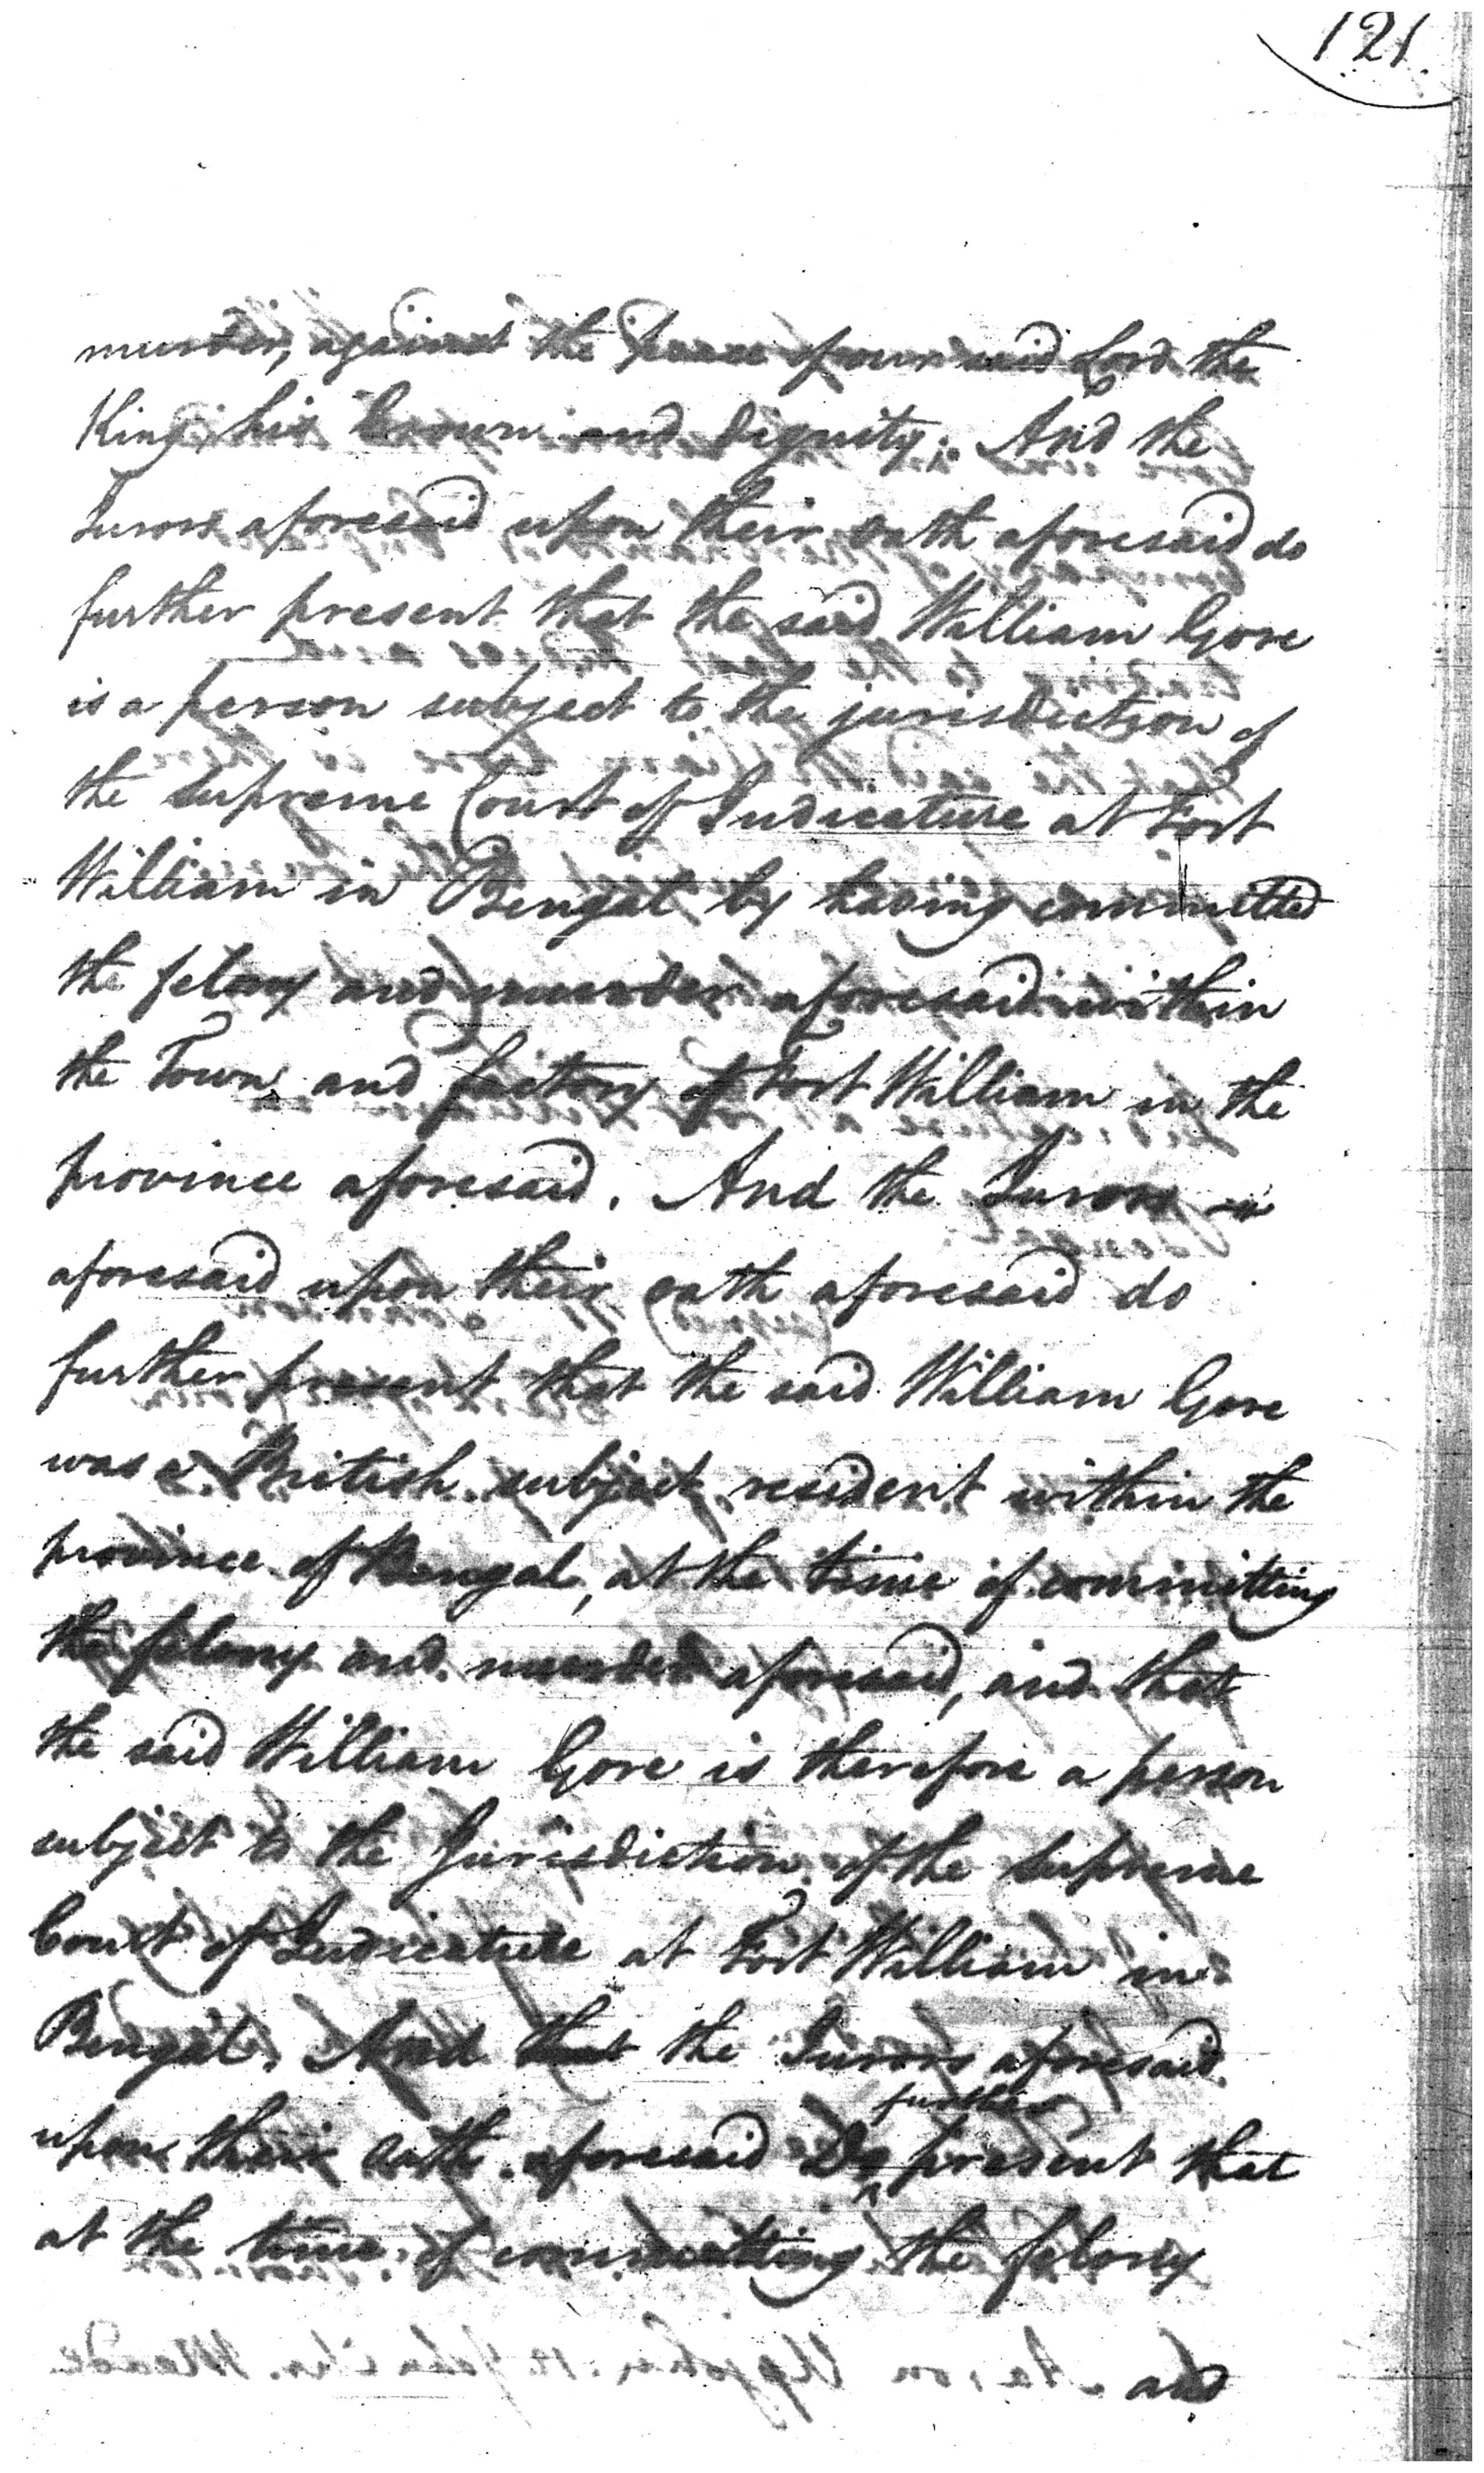 121.
murder, against the Peace of our said Lord the
King, his Crown and Dignity. And the
Jurors aforesaid upon their oath aforesaid do
further present that the said William Gore
is a person subject to the jurisdiction of
the Supreme Court of Judicature at Fort
William in Bengal by having committed
the felony and murder aforesaid within
the Town and factory of Fort William in the
province aforesaid. And the Jurors
aforesaid upon their oath aforesaid do
further present that the said William Gore
was a British subject resident within the
province of Bengal, at the time of committing
the felony and murder aforesaid, and that
the said William Gore is therefore a person
subject to the Jurisdiction of the Supreme
Court of Judicature at Fort William in
Bengal. And that the Jurors aforesaid
further
upon their oath aforesaid Do present that
at the time of committing the felony
and